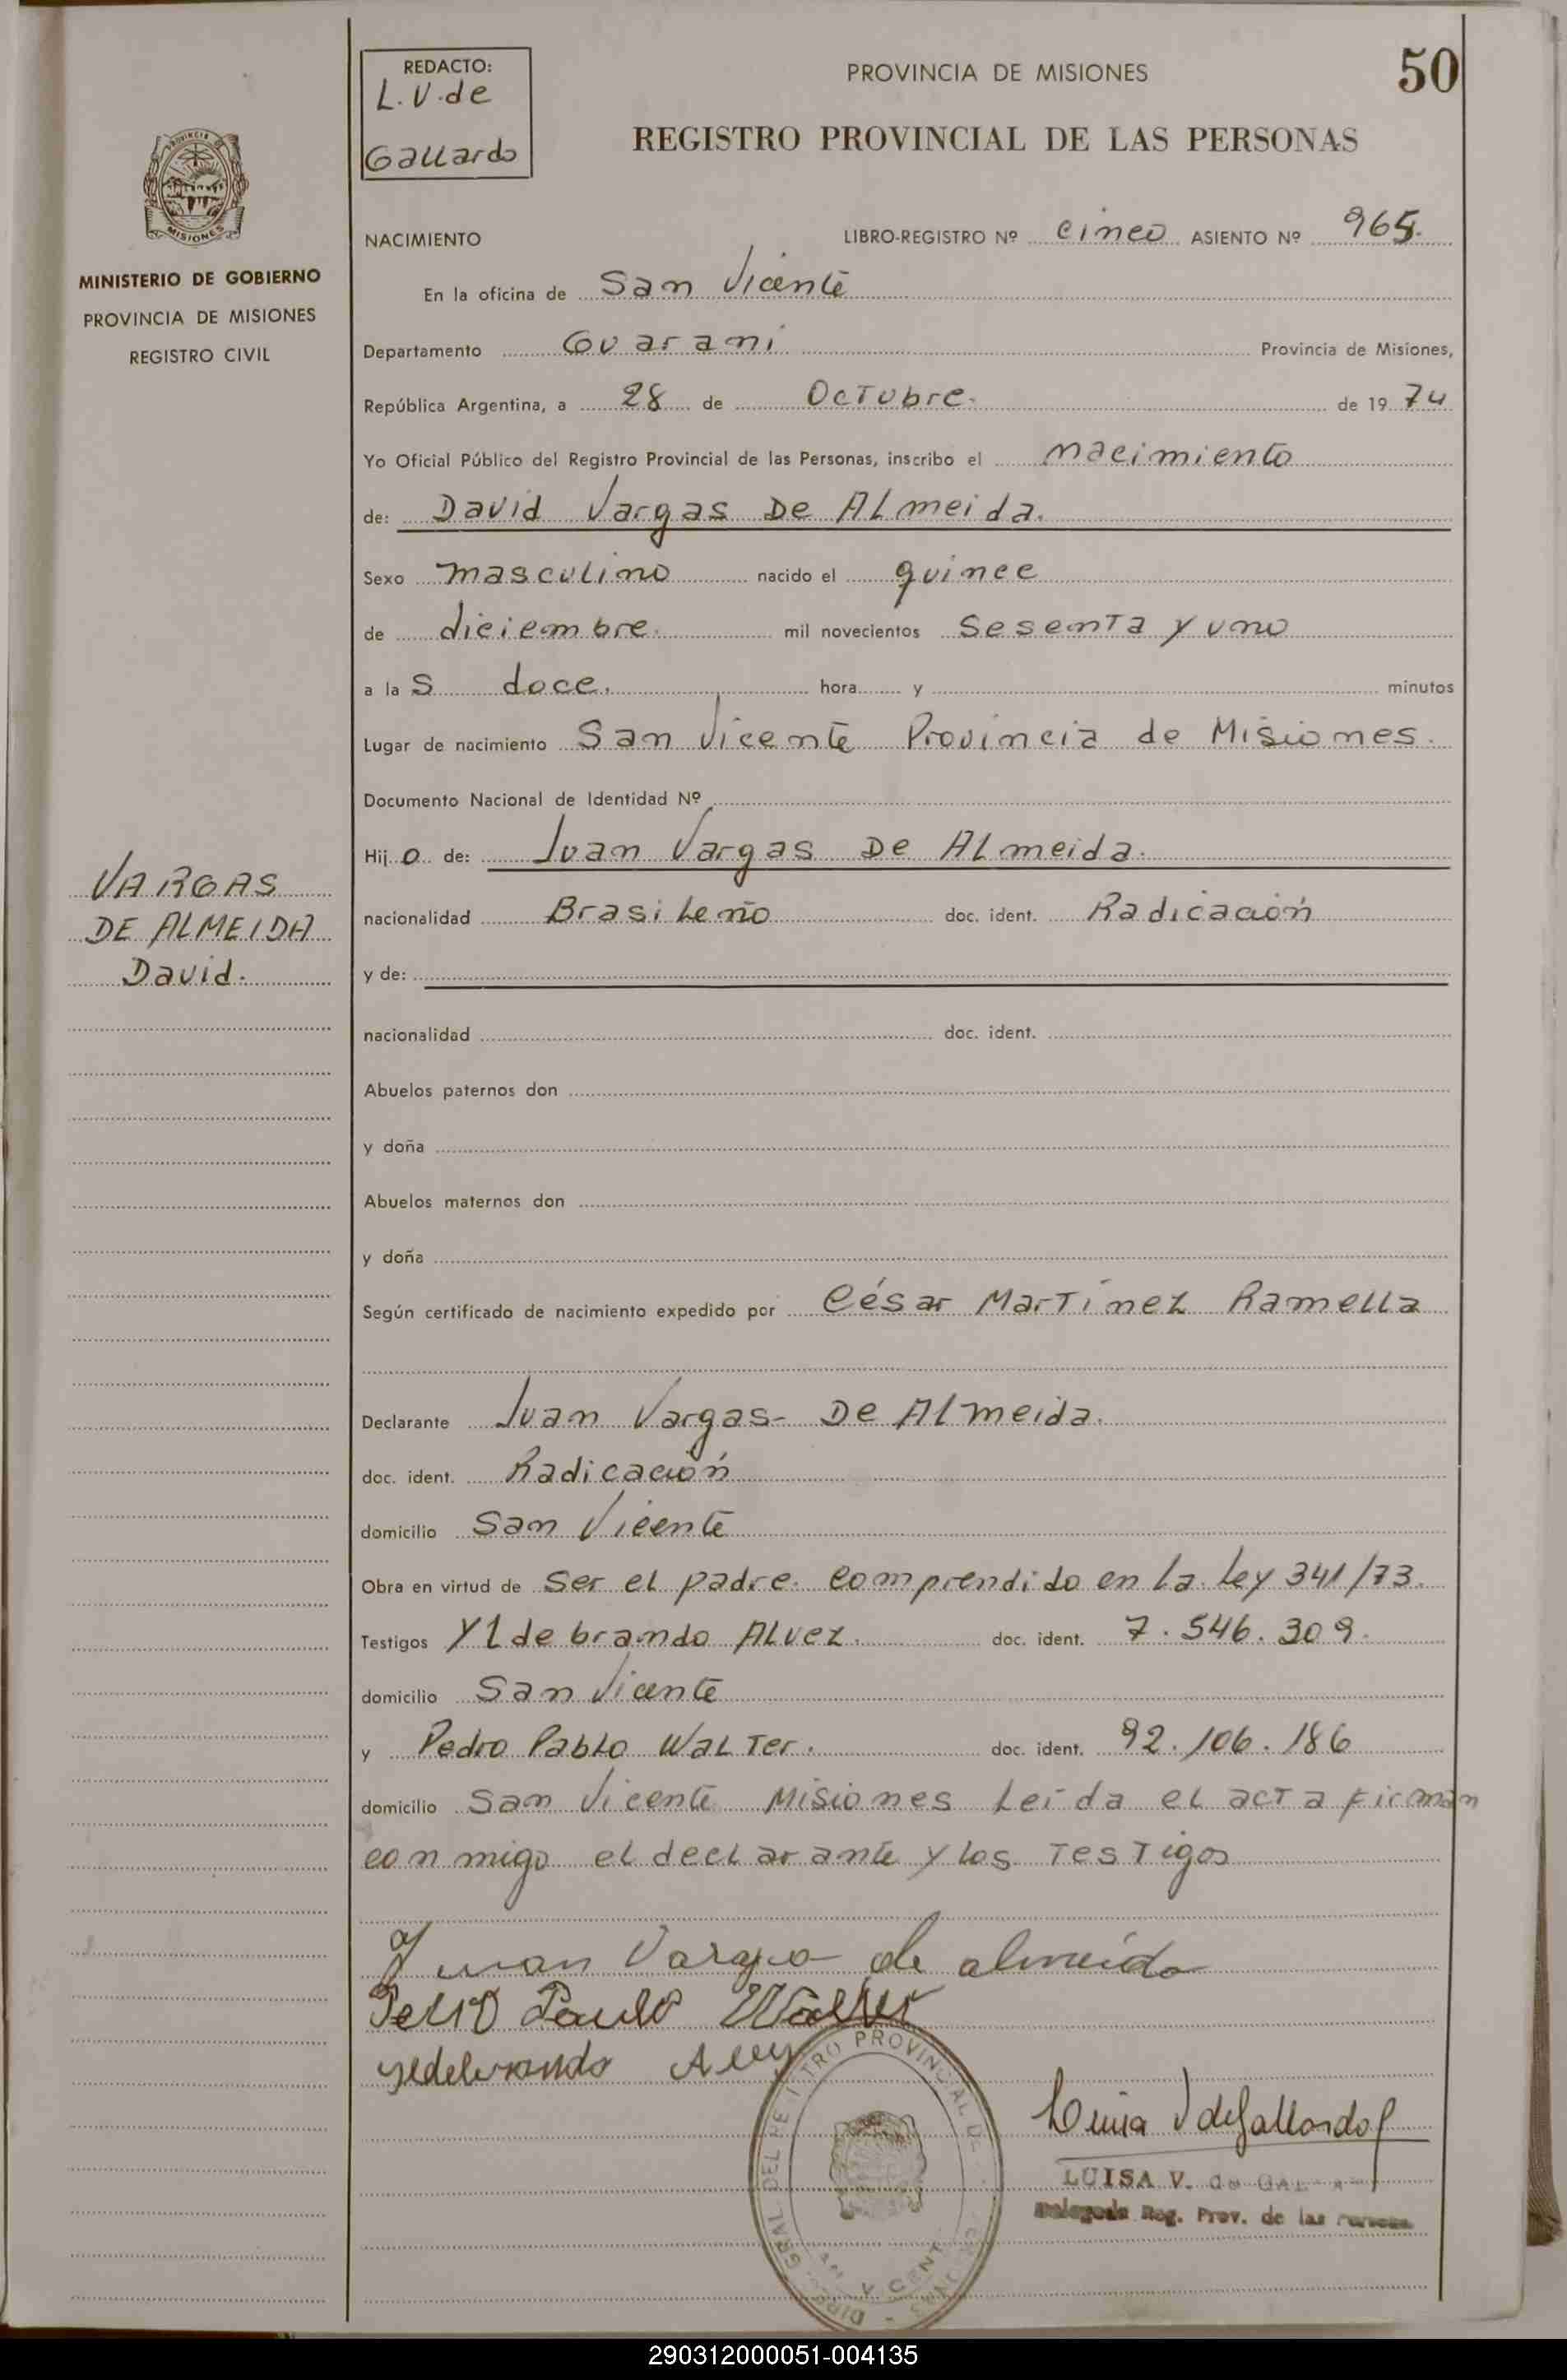 REDACTO:
L. V. de
Gallardo
PROVINCIA DE MISIONES
50
REGISTRO PROVINCIAL DE LAS PERSONAS
MISIONES
MINISTERIO DE GOBIERNO
PROVINCIA DE MISIONES
REGISTRO CIVIL
NACIMIENTO LIBRO-REGISTRO Nº cinco ASIENTO Nº 965.
En la oficina de San Vicente
Departamento Guarani Provincia de Misiones,
República Argentina, a 28 de Octubre. de 19 74
Yo Oficial Público del Registro Provincial de las Personas, inscribo el nacimiento
de: David Vargas De Almeida.
Sexo masculino nacido el quince
de diciembre. mil novecientos sesenta y uno
a la s doce. hora y minutos
Lugar de nacimiento San Vicente Provincia de Misiones.
Documento Nacional de Identidad Nº
Hij o de: Juan Vargas De Almeida.
VARGAS
DE ALMEIDA
David.
nacionalidad Brasileño doc. ident. Radicación
y de:
nacionalidad doc. ident.
Abuelos paternos don
y doña
Abuelos maternos don
y doña
Según certificado de nacimiento expedido por César Martínez Ramella
Declarante Juan Vargas- De Almeida.
doc. ident. Radicación
domicilio San Vicente
Obra en virtud de ser el padre. comprendido en la Ley 341/73.
Testigos Yldebrando Alvez. doc. ident. 7.546.309.
domicilio San Vicente
y Pedro Pablo Walter. doc. ident. 92.106.186
domicilio San Vicente Misiones Leída el acta firman
conmigo el declarante y los testigos
Juan Vargas de almeida
Pedro Paulo Walter
yldebrando
PROVINCIAL
Luisa V de Gallardo
LUISA V. de
Reg. Prov. de las
290312000051-004135